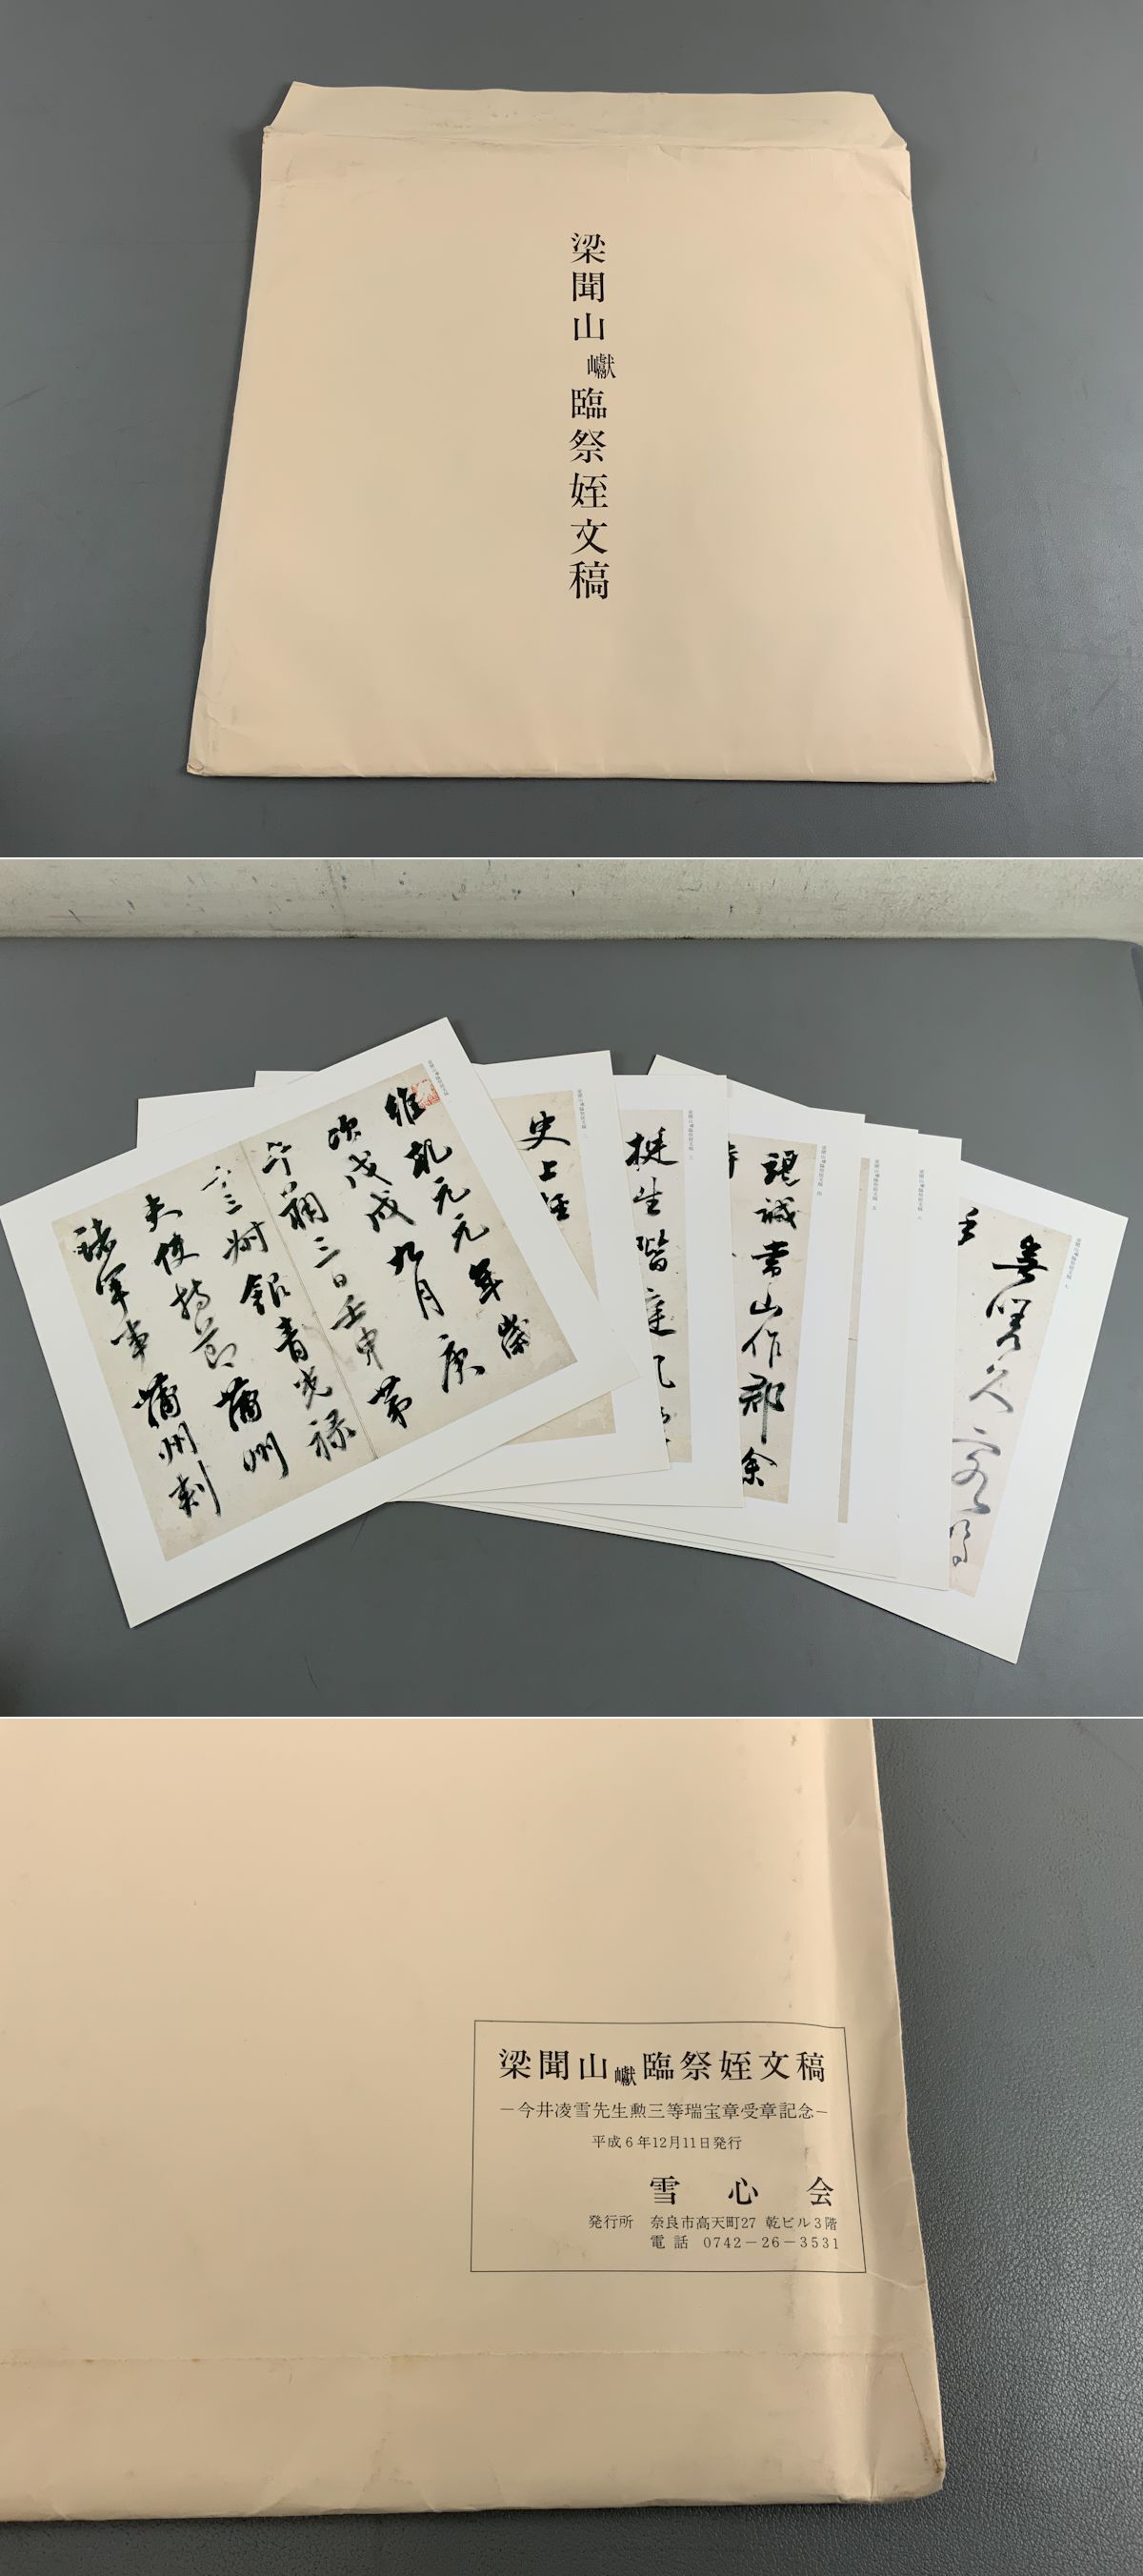 梁聞山巘臨祭姪文稿
維乹元元年歲
次戊戌九月庚
午朔三日壬申第
十三叔銀青光禄
夫使持節蒲州
諸軍事蒲州刺
史上軽
挺生階庭
規誠常山作郡余
無嗟久客嗚
梁聞山巘臨祭姪文稿
－今井凌雪先生勲三等瑞宝章受章記念－
平成6年12月11日発行
雪心会
発行所 奈良市高天町27 乾ビル3階
電話 0742－26－3531